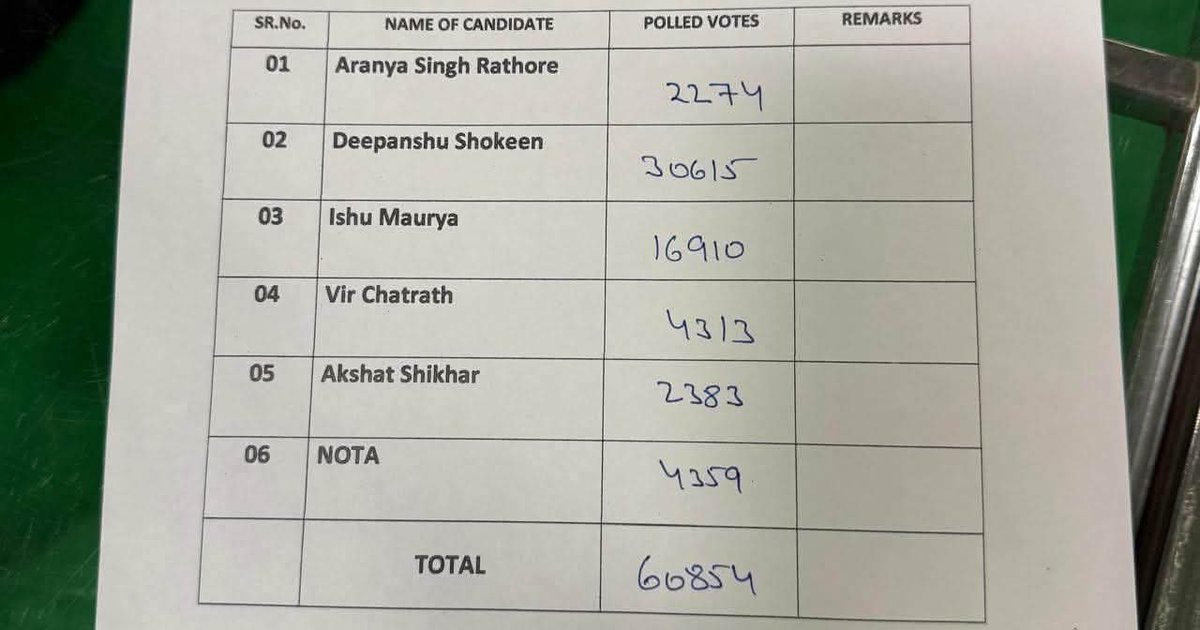 SR.No. NAME OF CANDIDATE POLLED VOTES REMARKS
01 Aranya Singh Rathore 2274
02 Deepanshu Shokeen 30615
03 Ishu Maurya 16910
04 Vir Chatrath 4313
05 Akshat Shikhar 2383
06 NOTA 4359
TOTAL 60854